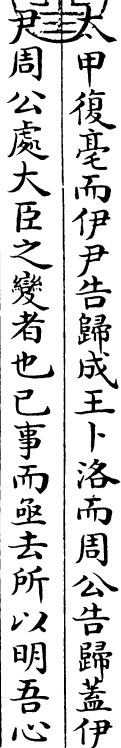 太甲復亳而伊尹告歸成王卜洛而周公告歸蓋伊
尹周公處大臣之變者也已事而亟去所以明吾心